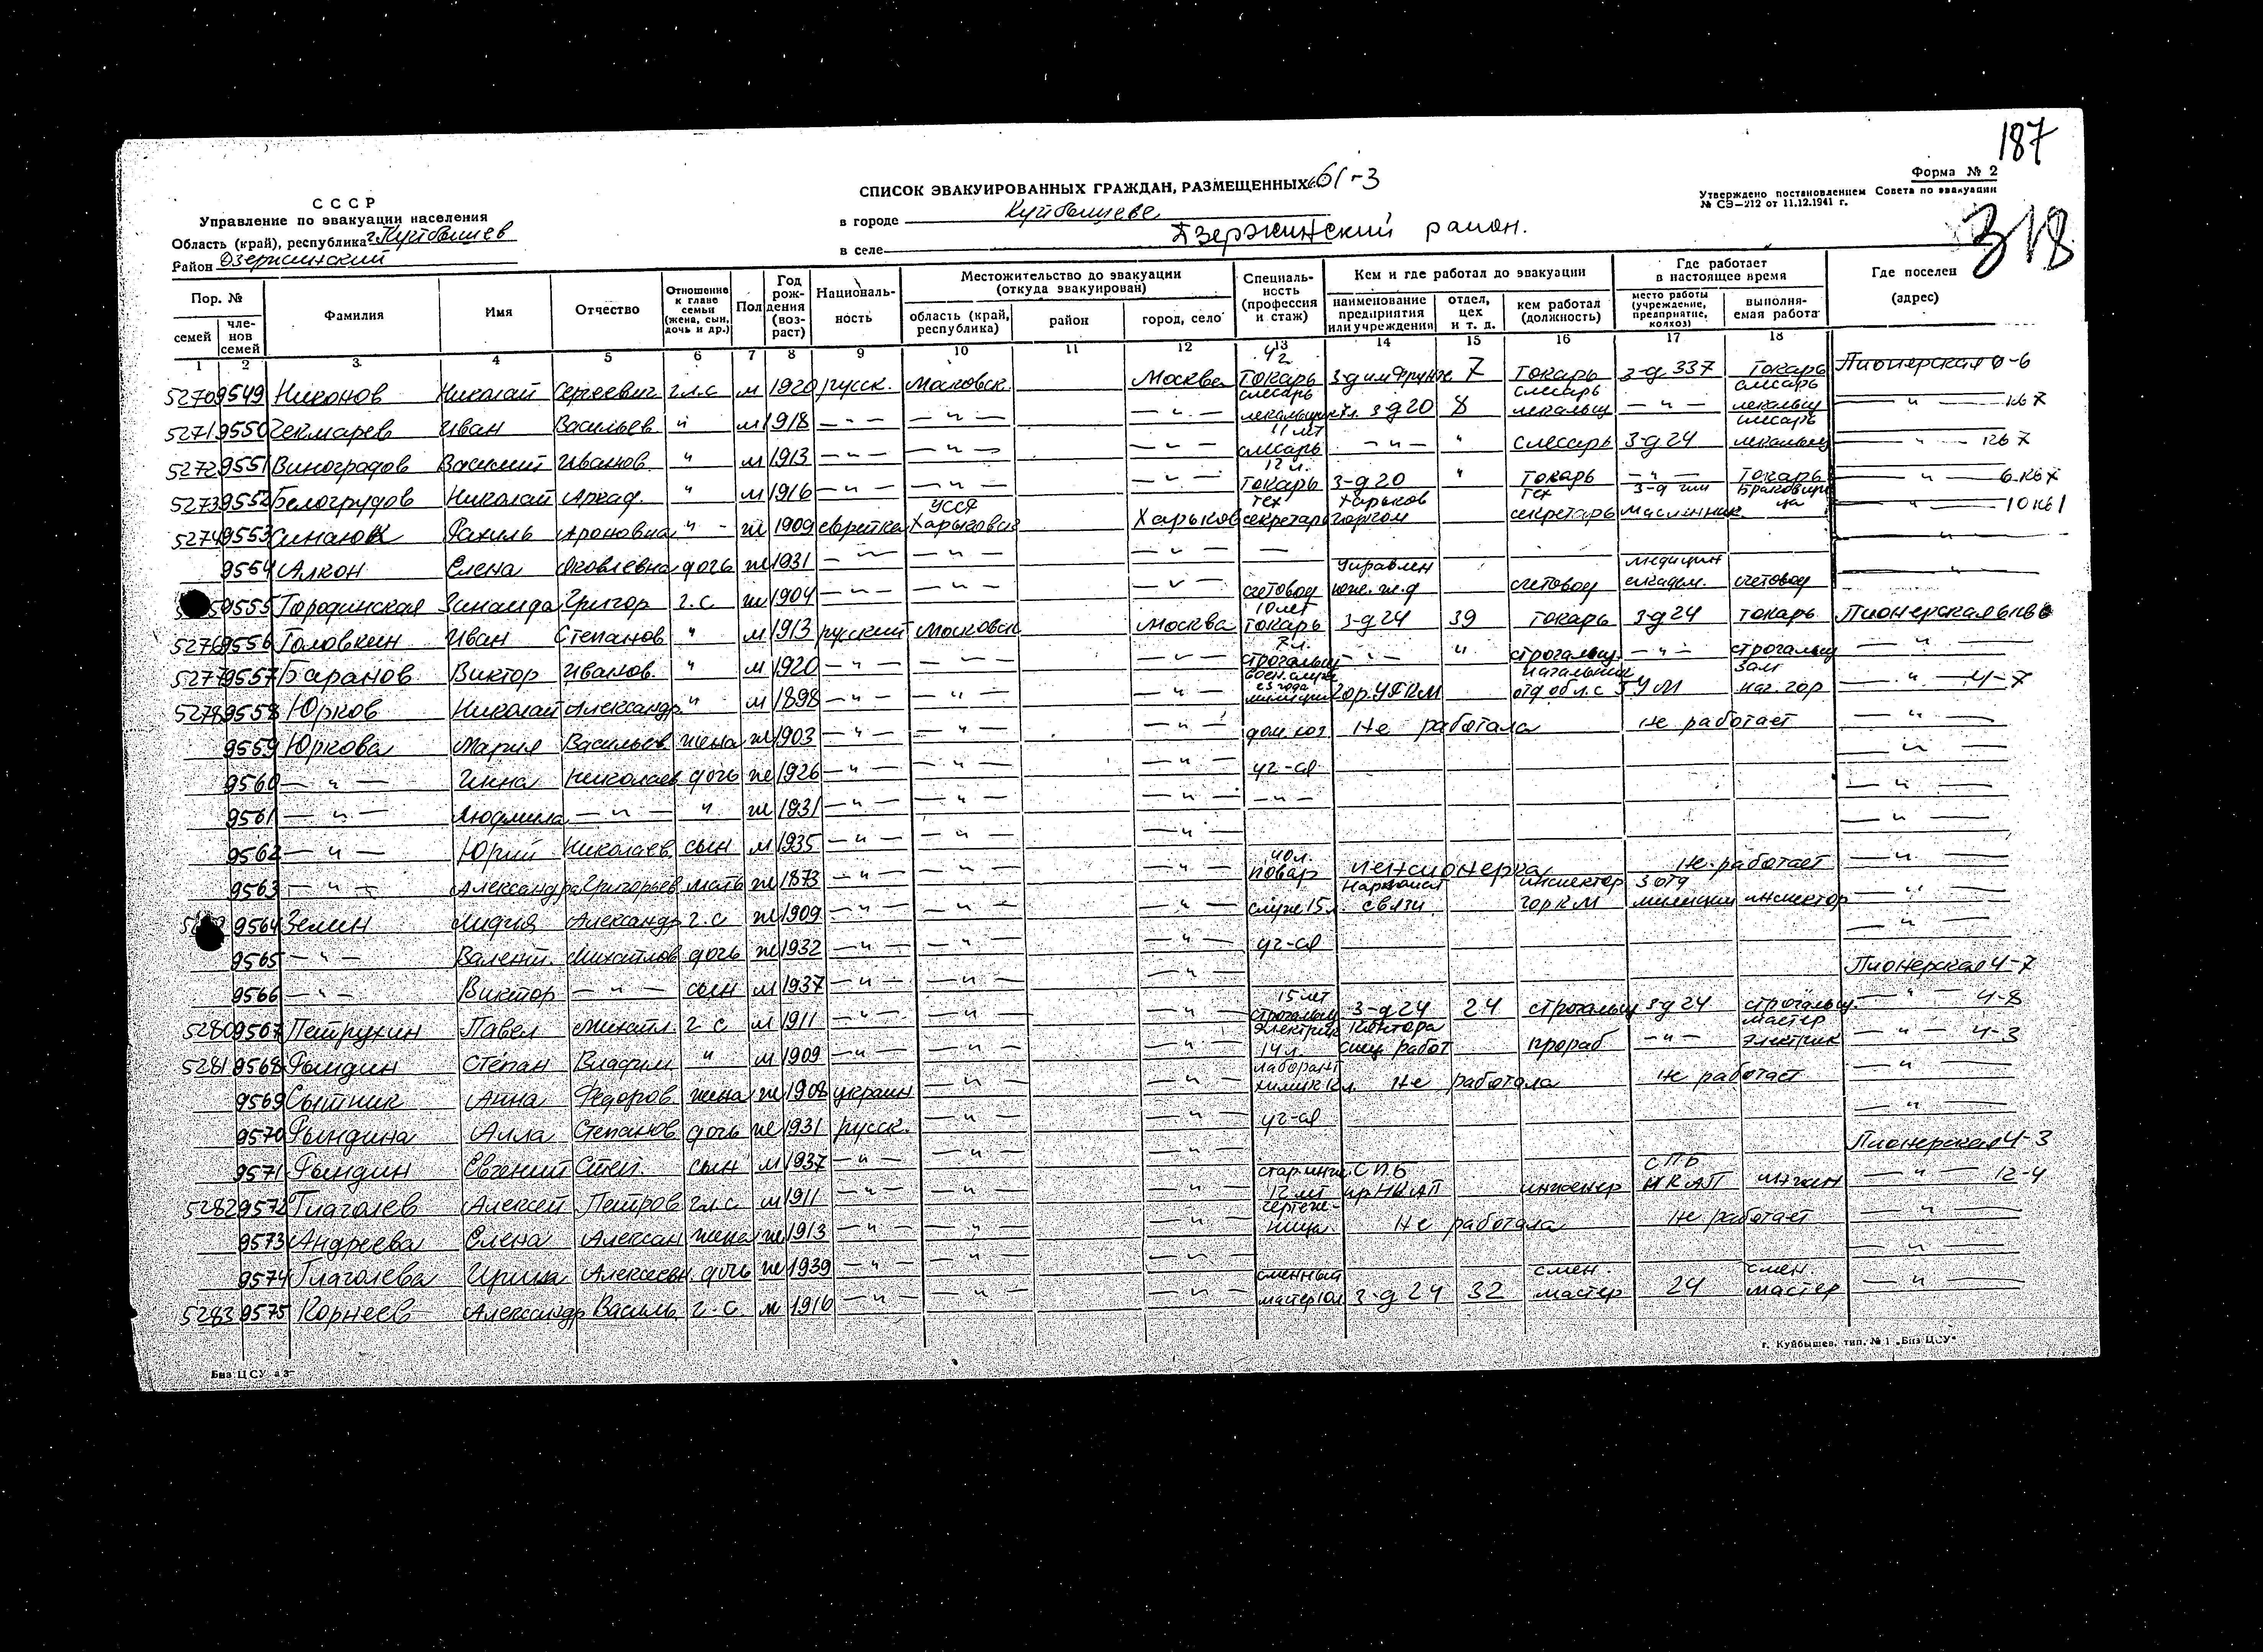 187
Форма № 2
СПИСОК ЭВАКУИРОВАННЫХ ГРАЖДАН, РАЗМЕЩЕННЫХ
Утверждено постановлением Совета по эвакуации
№ СЭ—212 от 11.12.1941 г.
318
СССР
Управление по эвакуации населения
Область (край), республика г. Куйбышев
Район Дзержинский
в городе Куйбышеве
в селе Дзержинский район.
Пор. №
семей
членов семей
Фамилия
Имя
Отчество
Отношение к главе семьи (жена, сын, дочь и др.)
Пол
Год рождения (возраст)
Националь-ность
Местожительство до эвакуации (откуда эвакуирован)
область (край, республика)
район
город, село
Специаль-ность (профессия и стаж)
Кем и где работал до эвакуации
наименование предприятия или учреждения
отдел, цех и т. д.
кем работал (должность)
Где работает в настоящее время
место работы (учреждение, предприятие, колхоз)
выполня-емая работа
Где поселен (адрес)
1 2 3 4 5 6 7 8 9 10 11 12 13 14 15 16 17 18
5270 9549 Никонов Николай Сергеевич гл.с м 1920 русск. Московск. Москва токарь з-д им Фрунзе 7 токарь з-д 337 токарь Пионерская 0-6
5271 9550 Чекмарев Иван Васильев " м 1918 — " — — " — — " — слесарь лекальщ з-д 20 8 слесарь лекальщ — " — слесарь лекальщ — " —
5272 9551 Виноградов Василий Иванов " м 1913 — " — — " — — " — 11 лет слесарь — " — " слесарь з-д 24 слесарь лекальщ — " —
5273 9552 Белогрудов Николай Аркад. " м 1916 — " — — " — — " — 12 л. токарь з-д 20 " токарь — " — токарь — " —
5274 9553 Рахиль Ароновна " ж 1909 еврейка УССР Харьковск Харьков тех секретарь Харьков горком тех секретарь з-д им Масленник. — " —
9554 Алкон Елена Яковлевна дочь ж 1931 — " — — " — — " — — — " —
9555 Городинская Зинаида Григор г.с. ж 1904 — " — — " — — " — счетовод Управлен юж. ж.д счетовод медицин академ. счетовод — " —
5276 9556 Головкин Иван Степанов " м 1913 русский Московск Москва 10 лет токарь з-д 24 39 токарь з-д 24 токарь Пионерская
5277 9557 Баранов Виктор Иванов. " м 1920 — " — — " — — " — строгальщ — " — " строгальщ. — " — строгальщ — " —
5278 9558 Юрков Николай Александр " м 1898 — " — — " — — " — начальник зам — " — 4-7
9559 Юркова Мария Васильев жена ж 1903 — " — — " — — " — дом. хоз. Не работала Не работает — " —
9560 — " — Инна Николаев дочь ж 1926 — " — — " — — " — уч-ся — " —
9561 — " — Людмила — " — " ж 1931 — " — — " — — " — — " — — " —
9562 — " — Юрий Николаев сын м 1935 — " — — " — — " — — " —
9563 — " — Александра Григорьев мать ж 1873 — " — — " — — " — 40 л. повар пенсионерка Не работает — " —
9564 Зелин Лидия Александр г.с ж 1909 — " — — " — — " — служ 15 л. Наркомат связи инспектор гор К М 3 отд милиции инспектор — " —
9565 — " — Валент. Михайлов дочь ж 1932 — " — — " — — " — уч-ся — " —
9566 — " — Виктор — " — сын м 1937 — " — — " — — " — Пионерская 4-7
5280 9567 Петрухин Павел Михайл. г.с м 1911 — " — — " — — " — 15 лет строгальщ з-д 24 24 строгальщ з-д 24 строгальщ. — " — 4-8
5281 9568 Рындин Степан Владим " м 1909 — " — — " — — " — электрик 14 л. Контора спец работ прораб — " — мастер электрик — " — 4-3
9569 Сытник Анна Федоров. жена ж 1908 украин — " — — " — лаборант химик Не работала Не работает — " —
9570 Рындина Алла Степанов дочь ж 1931 русск. — " — — " — уч-ся — " —
9571 Рындин Евгений Степ. сын м 1937 — " — — " — — " — Пионерская 4-3
5282 9572 Глаголев Алексей Петров гл.с м 1911 — " — — " — — " — стар. инж. 12 лет С.П.Б при НКАП инженер СПБ НКАП инжен — " — 12-4
9573 Андреева Елена Алексан жена ж 1913 — " — — " — — " — чертеж-ница. Не работала Не работает — " —
9574 Глаголева Ирина Алексеевн. дочь ж 1939 — " — — " — — " — — " —
5283 9575 Корнеев Александр Василь. г.с. м 1916 — " — — " — — " — сменный мастер 10л з-д 24 32 смен. мастер 24 смен. мастер — " —
Биз ЦСУ
г. Куйбышев. тип. № 1 „Биз ЦСУ"